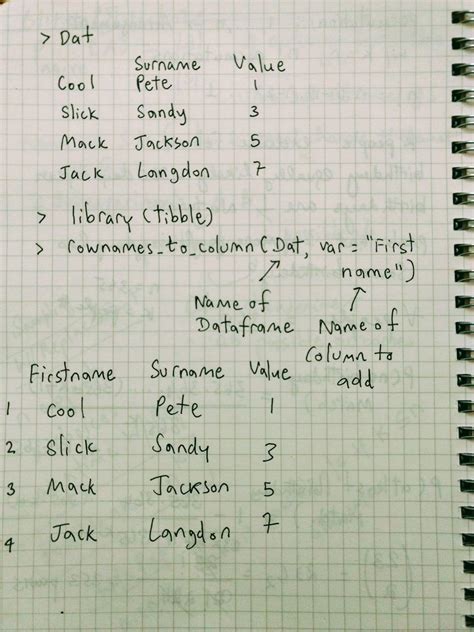 > Dat
Surname Value
Cool Pete 1
Slick Sandy 3
Mack Jackson 5
Jack Langdon 7
> library (tibble)
> rownames_to_column (Dat, var = "First
name")
Name of
Dataframe
Name of
Column to
add
Firstname Surname Value
1 Cool Pete 1
2 Slick Sandy 3
3 Mack Jackson 5
4 Jack Langdon 7